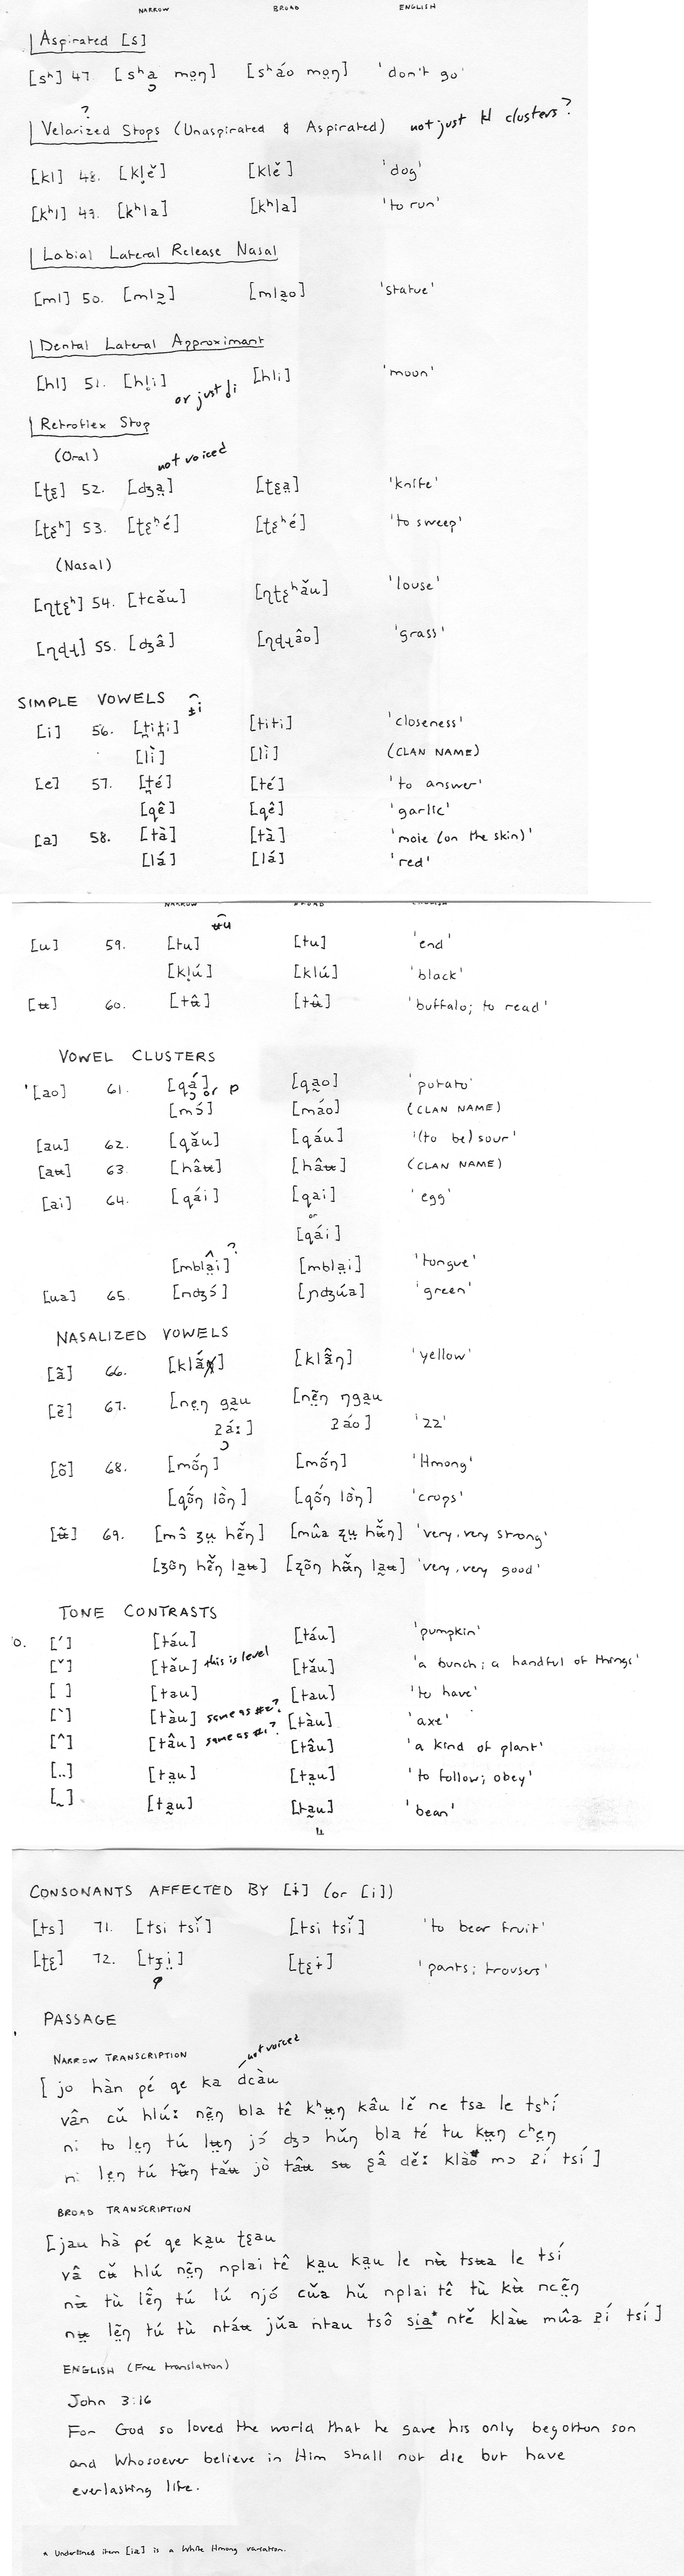 NARROW BROAD ENGLISH
Aspirated [s]
[sʰ] 47 [sʰa̤ mo̤ŋ] [sʰáo mo̤ŋ] 'don't go'
?
Velarized Stops (Unaspirated & Aspirated) not just kl clusters?
[kl] 48. [kl̥ě] [klě] 'dog'
[kʰl] 49. [kʰla] [kʰla] 'to run'
Labial Lateral Release Nasal
[ml] 50. [mlɔ̰] [mla̰o] 'statue'
Dental Lateral Approximant
[hl] 51. [hl̥i] or just l̥i [hli] 'moon'
Retroflex Stop
(Oral) not voiced
[ʈʂ] 52. [dʒa̤] [ʈʂa̤] 'knife'
[ʈʂʰ] 53. [ʈʂʰé] [ʈʂʰé] 'to sweep'
(Nasal)
[ɳʈʂʰ] 54. [tcǎu] [ɳʈʂʰǎu] 'louse'
[ɳɖɻ] 55. [dʒâ] [ɳɖɻâo] 'grass'
SIMPLE VOWELS
[i] 56. [t̪it̪i] [titi] 'closeness'
[lì] [lì] (CLAN NAME)
[e] 57. [t̪é] [té] 'to answer'
[qê] [qê] 'garlic'
[a] 58. [tà] [tà] 'mole (on the skin)'
[lá] [lá] 'red'
NARROW BROAD ENGLISH
[u] 59. [tu] [tu] 'end'
[kl̥ú] [klú] 'black'
[ʉ] 60. [tʉ̂] [tʉ̂] 'buffalo; to read'
VOWEL CLUSTERS
[ao] 61. [qá̤] or ɒ [qa̤o] 'potato'
[mɔ́] [máo] (CLAN NAME)
[au] 62. [qǎu] [qáu] '(to be) sour'
[aʉ] 63. [hâʉ] [hâʉ] (CLAN NAME)
[ai] 64. [qái] [qai] 'egg'
or
[qái]
?
[mblâ̤i] [mbla̤i] 'tongue'
[ua] 65. [nʤɔ́] [ɲʤúa] 'green'
NASALIZED VOWELS
[ã] 66. [klã́ŋ] [klã̂ŋ] 'yellow'
[ẽ] 67. [nẹŋ ga̰u [nẽ̤ŋ ŋga̰u
ʔáː] ʔáo] '22'
[õ] 68. [mṍŋ] [mṍŋ] 'Hmong'
[qṍŋ lồŋ] [qṍŋ lồŋ] 'crops'
[ʉ̃] 69. [mɔ̂ ʒṳ hẽ̌ŋ] [mûa ʐṳ hʉ̃̌ŋ] 'very, very strong'
[ʒõŋ hẽ̌ŋ la̰ʉ] [ʐõŋ hʉ̃̌ŋ la̰ʉ] 'very, very good'
TONE CONTRASTS
0. [´] [táu] [táu] 'pumpkin'
[ˇ] [tǎu] this is level [tǎu] 'a bunch; a handful of things'
[ ] [tau] [tau] 'to have'
[`] [tàu] same as #2? [tàu] 'axe'
[^] [tâu] same as #1? [tâu] 'a kind of plant'
[..] [ta̤u] [ta̤u] 'to follow; obey'
[~] [ta̰u] [ta̰u] 'bean'
CONSONANTS AFFECTED BY [ɨ] (or [i])
[ts] 71. [tsi tsǐ] [tsi tsǐ] 'to bear fruit'
[ʈʂ] 72. [tʒi̤] [ʈʂɨ] 'pants; trousers'
PASSAGE
NARROW TRANSCRIPTION not voiced
[ jo hàn pé qe ka dcàu
vân cǔ hlúː nẽ̤ŋ bla tê kʰʉŋ kâu lě ne tsa le tsʰí
ni to lẹŋ tú lʉŋ jɔ́ dʒɔ hǔŋ bla té tu kʉŋ cʰẹŋ
ni lẹŋ tú tʉ̃ŋ tǎʉ jò tâʉ sʉ ʂâ děː klàʉ mɔ ʔí tsí ]
BROAD TRANSCRIPTION
[ jau hà pé qe ka̤u ʈʂau
vâ cʉ̌ hlú nẽ̤ŋ nplai tê ka̤u kạu le nʉ̀ tsʉa le tsí
nʉ̀ tù lễŋ tú lú njó cǔa hǔ nplai tê tù kʉ̀ ncẽ̤ŋ
nʉ̤ lẽ̤ŋ tú tù ntáʉ jǔa ntau tsô sia* ntě klàʉ mûa ʔí tsí ]
ENGLISH (Free translation)
John 3:16
For God so loved the world that he gave his only begotton son
and Whosoever believe in Him shall not die but have
everlasting life.
* Underlined item [ia] is a White Hmong variation.